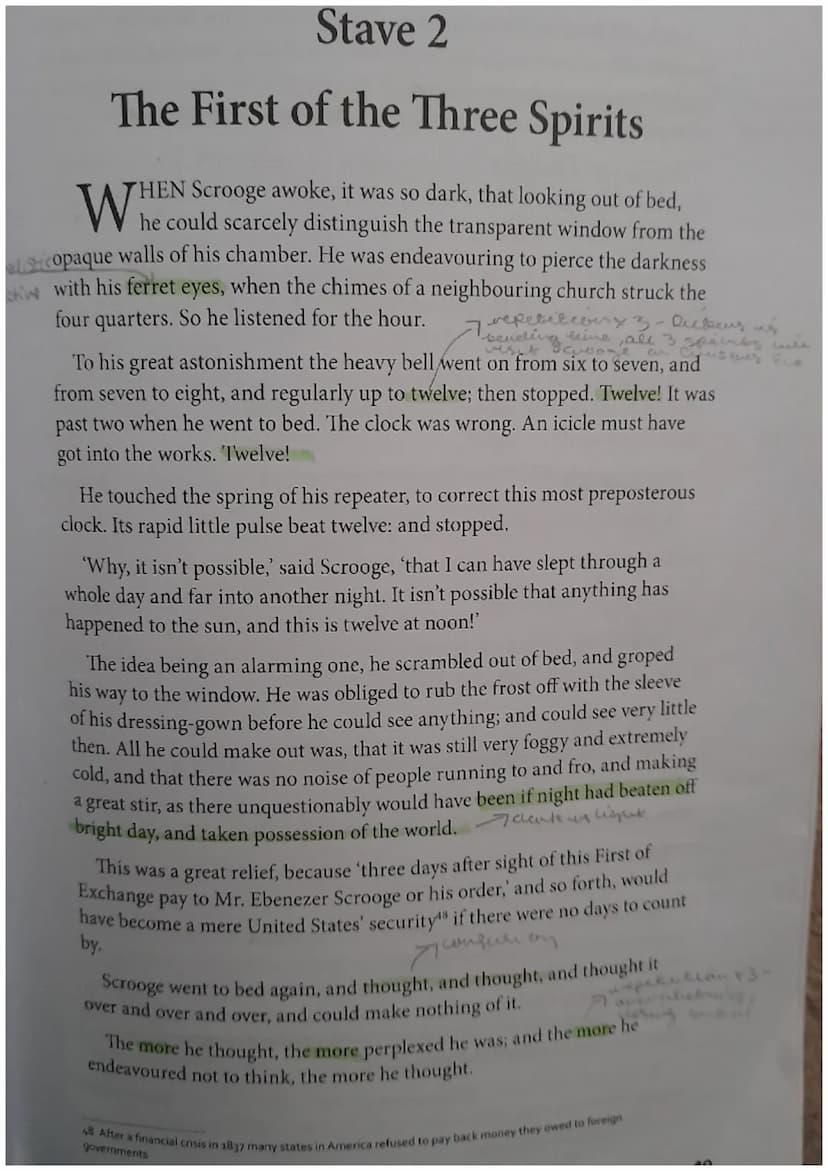 Stave 2
The First of the Three Spirits
WHEN Scrooge awoke, it was so dark, that looking out of bed,
he could scarcely distinguish the transparent window from the
opaque walls of his chamber. He was endeavouring to pierce the darkness
with his ferret eyes, when the chimes of a neighbouring church struck the
four quarters. So he listened for the hour.
repetition x 3 - Dickens is
bending time, all 3 spirits will
visit Scrooge on Christmas Eve
To his great astonishment the heavy bell went on from six to seven, and
from seven to eight, and regularly up to twelve; then stopped. Twelve! It was
past two when he went to bed. The clock was wrong. An icicle must have
got into the works. Twelve!
He touched the spring of his repeater, to correct this most preposterous
clock. Its rapid little pulse beat twelve: and stopped.
‘Why, it isn’t possible,’ said Scrooge, ‘that I can have slept through a
whole day and far into another night. It isn’t possible that anything has
happened to the sun, and this is twelve at noon!’
The idea being an alarming one, he scrambled out of bed, and groped
his way to the window. He was obliged to rub the frost off with the sleeve
of his dressing-gown before he could see anything; and could see very little
then. All he could make out was, that it was still very foggy and extremely
cold, and that there was no noise of people running to and fro, and making
a great stir, as there unquestionably would have been if night had beaten off
bright day, and taken possession of the world.
light
This was a great relief, because ‘three days after sight of this First of
Exchange pay to Mr. Ebenezer Scrooge or his order,’ and so forth, would
have become a mere United States’ security48 if there were no days to count
by.
Scrooge went to bed again, and thought, and thought, and thought it
over and over and over, and could make nothing of it.
repetition x3 -
The more he thought, the more perplexed he was; and the more he
endeavoured not to think, the more he thought.
48 After a financial crisis in 1837 many states in America refused to pay back money they owed to foreign
governments